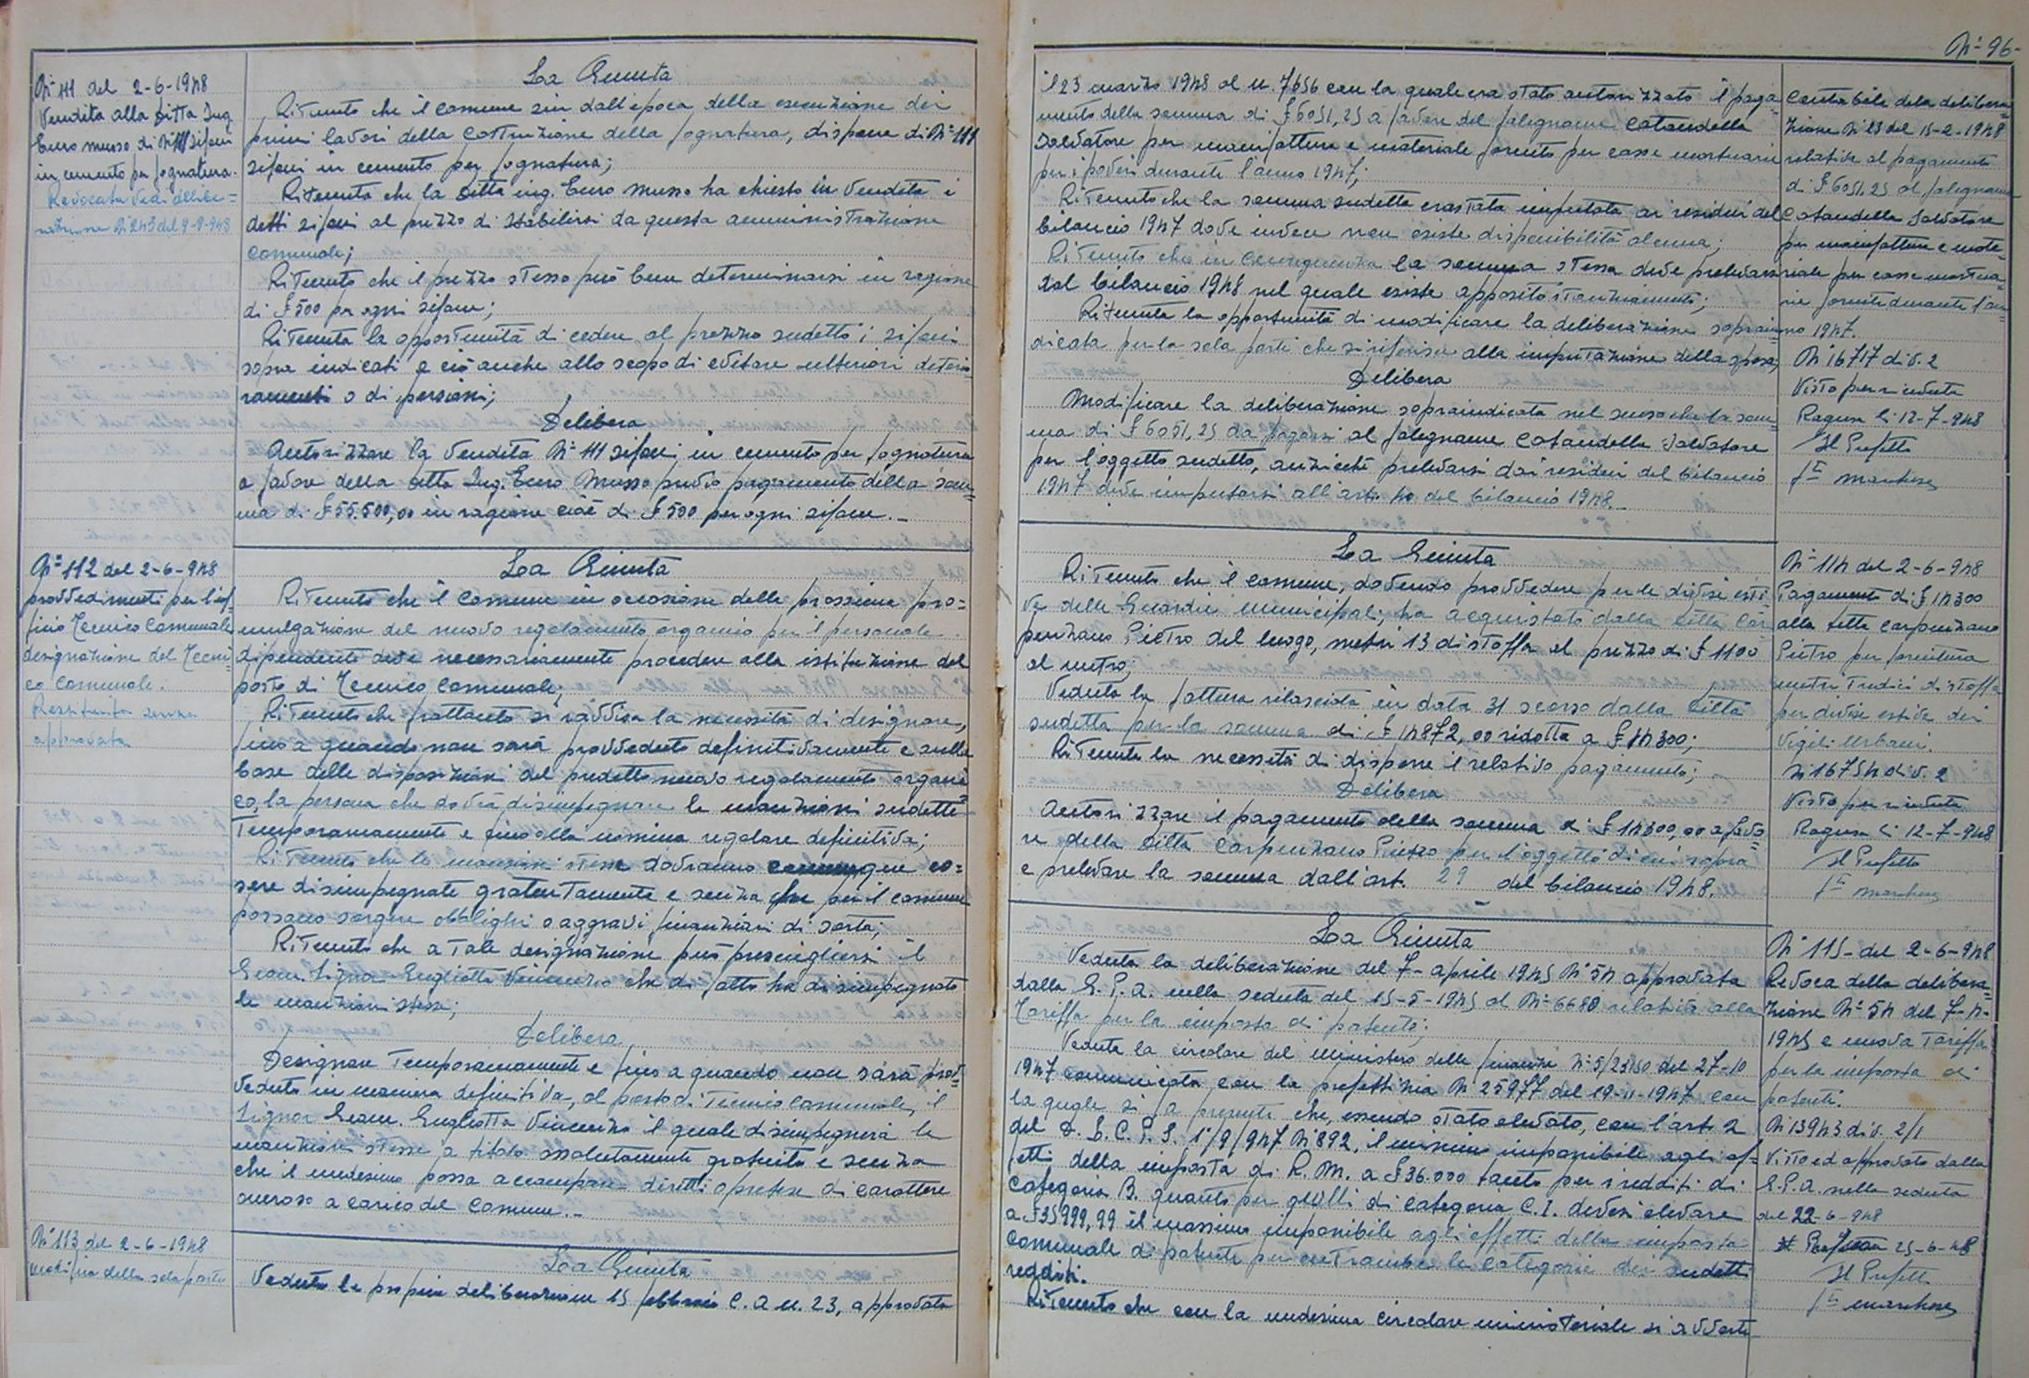 N° 111 del 2-6-1948
Vendita alla ditta Ing.
Euro Musso di N° 111 sifoni
in cemento per fognatura.
Revocata Vedi delibe=
razione N° 243 del 9-9-948
La Giunta
Ritenuto che il comune sin dall'epoca della esecuzione dei
primi lavori della costruzione della fognatura, dispone di N° 111
sifoni in cemento per fognatura;
Ritenuto che la Ditta ing. Euro Musso ha chiesto in vendita i
detti sifoni al prezzo di stabilirsi da questa amministrazione
comunale;
Ritenuto che il prezzo stesso può bene determinarsi in ragione
di £ 500 per ogni sifone;
Ritenuta la opportunità di cedere al prezzo sudetto i sifoni
sopra indicati e ciò anche allo scopo di evitare ulteriori deterio=
ramenti o dispersioni;
Delibera
Autorizzare la vendita N° 111 sifoni in cemento per fognatura
a favore della ditta Ing. Euro Musso previo pagamento della som=
ma di £ 55.500,00 in ragione cioè di £ 500 per ogni sifone._
N° 112 del 2-6-948
provvedimenti per l'uf=
ficio Tecnico Comunale
designazione del Tecni=
co Comunale.
Restituita senza
approvata
La Giunta
Ritenuto che il comune in occasione della prossima pro=
mulgazione del nuovo regolamento organico per il personale
dipendente deve necessariamente procedere alla istituzione del
posto di Tecnico Comunale;
Ritenuto che frattanto si ravvisa la necessità di designare,
fino a quando non sarà provveduto definitivamente e sulla
base delle disposizioni del predetto nuovo regolamento organi=
co, la persona che dovrà disimpegnare le mansioni sudette
temporaneamente e fino alla nomina regolare definitiva;
Ritenuto che le mansioni stesse dovranno comunque es=
sere disimpegnate gratuitamente e senza che per il comune
possano sorgere obblighi o aggravi finanziari di sorta;
Ritenuto che a tale designazione può prescegliersi il
Geom. Signor Gugliotta Vincenzo che di fatto ha disimpegnato
le mansioni stesse;
Delibera
Designare temporaneamente e fino a quando non sarà prov=
veduto in maniera definitiva, al posto di Tecnico comunale, il
Signor Geom. Gugliotta Vincenzo il quale disimpegnerà le
mansioni stesse a titolo assolutamente gratuito e senza
che il medesimo possa accampare diritti o pretese di carattere
oneroso a carico del Comune._
N° 113 del 2-6-1948
modifica della sola parte
La Giunta
Veduta la propria deliberazione 15 febbraio c.a. n. 23, approvata
N° 96-
il 23 marzo 1948 al n. 7656 con la quale era stato autorizzato il paga=
mento della somma di £ 6051,25 a favore del falegname Cataudella
Salvatore per manifatture e materiale fornito per casse mortuarie
per i poveri durante l'anno 1947;
Ritenuto che la somma sudetta era stata imputata ai residui del
bilancio 1947 dove invece non esiste disponibilità alcuna;
Ritenuto che in conseguenza la somma stessa deve prelevarsi
dal bilancio 1948 nel quale esiste apposito stanziamento;
Ritenuta la opportunità di modificare la deliberazione soprain=
dicata per la sola parte che si riferisce alla imputazione della spesa;
Delibera
Modificare la deliberazione sopraindicata nel senso che la som=
ma di £ 6051,25 da pagarsi al falegname Cataudella Salvatore
per l'oggetto sudetto, anzicchè prelevarsi dai residui del bilancio
1947 deve imputarsi all'art. 40 del bilancio 1948._
contabile della delibera=
zione N° 23 del 15-2-1948
relativa al pagamento
di £ 6051,25 al falegname
Cataudella Salvatore
per manifatture e mate=
riale per casse mortua=
rie fornite durante l'an=
no 1947.
N 16717 div. 2
Visto per ricevuta
Ragusa li 12-7-948
Il Prefetto
f.to Marchese
La Giunta
Ritenuto che il comune, dovendo provvedere per le divise esti=
ve delle Guardie municipali, ha acquistato dalla ditta Car=
penzano Pietro del luogo, metri 13 di stoffa al prezzo di £ 1100
al metro;
Veduta la fattura rilasciata in data 31 scorso dalla ditta
sudetta per la somma di £ 14872,00 ridotta a £ 14300;
Ritenuta la necessità di disporre il relativo pagamento;
Delibera
Autorizzare il pagamento della somma di £ 14300,00 a favo=
re della ditta Carpenzano Pietro per l'oggetto di cui sopra
e prelevare la somma dall'art. 29 del bilancio 1948.
N° 114 del 2-6-948
Pagamento di £ 14300
alla ditta Carpenzano
Pietro per fornitura
metri tredici di stoffa
per divise estive dei
Vigili Urbani.
N 16754 div. 2
Visto per ricevuta
Ragusa li 12-7-948
Il Prefetto
f.to Marchese
La Giunta
Veduta la deliberazione del 7-aprile 1945 N° 54 approvata
dalla G.P.A. nella seduta del 15-5-1945 al N° 6680 relativa alla
Tariffa per la imposta di patente;
Veduta la circolare del Ministero delle finanze N° 5/2350 del 27-10
1947 comunicata con la prefettizia N 25977 del 19-11-1947 con
la quale si fa presente che, essendo stato elevato, con l'art. 2
del D.L.C.P.S. 1°/9/947 N° 892, il minimo imponibile agli ef=
fetti della imposta di R.M. a £ 36.000 tanto per i redditi di
categoria B. quanto per quelli di categoria C.I. devesi elevare
a £ 35999,99 il massimo imponibile agli effetti della imposta
comunale di patente per entrambe le categorie dei sudetti
redditi.
Ritenuto che con la medesima circolare ministeriale si avverte
N° 115- del 2-6-948
Revoca della delibera=
zione N° 54 del 7-4-
1945 e nuova Tariffa
per la imposta di
patente.
N 13943 div. 2/1
Visto ed approvato dalla
G.P.A. nella seduta
del 22-6-948
25-6-48
Il Prefetto
f.to Marchese